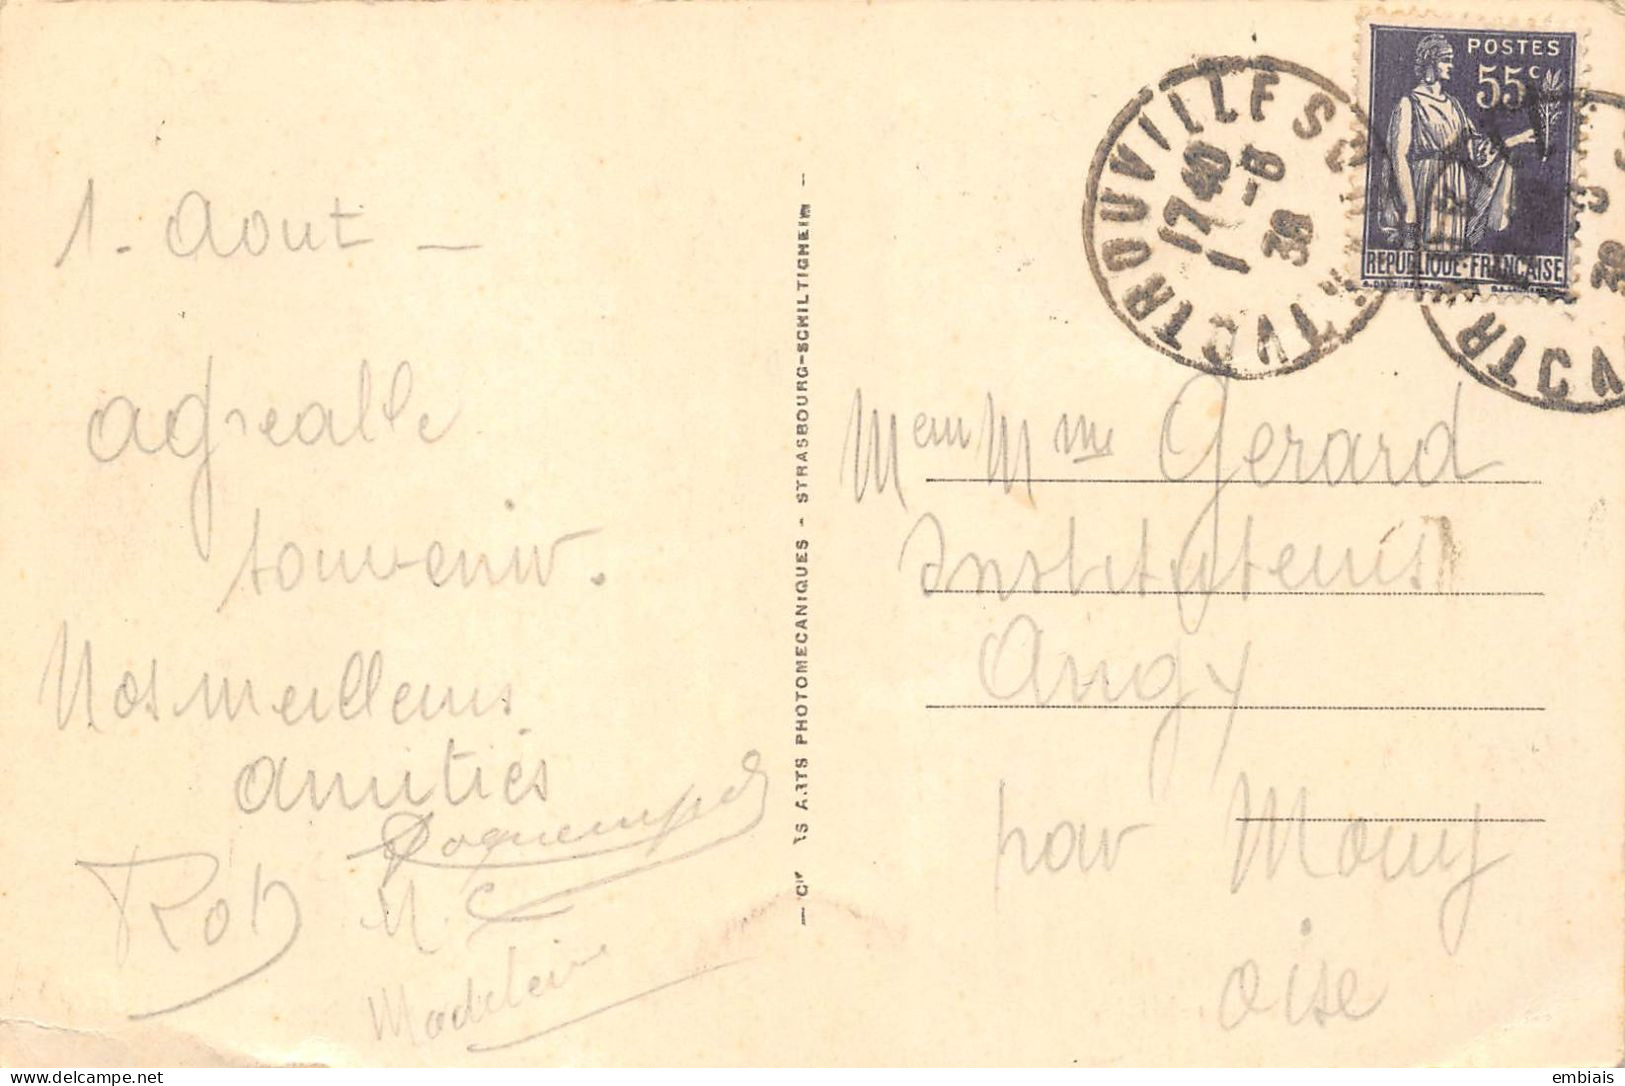 1. Aout –
agréable
souvenir.
Nos meilleurs
amitiés
Rob
M.
Madeleine
ARTS PHOTOMECANIQUES - STRASBOURG-SCHILTIGHEIM —
TROUVILLE S
17 40
1 -8
38
POSTES
55c
REPUBLIQUE·FRANÇAISE
M et Mme Gerard
Instituteurs
Angy
par Mouy
oise
embiais